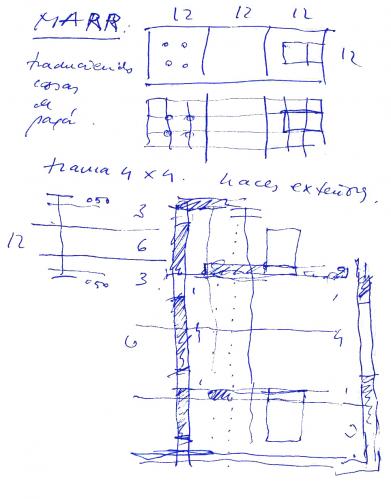 MARR.
12 12 12
12
traduciendo
cosas
de
papá.
trama 4 x 4. haces exteriores.
050
3
12
6
3
050
1
1
6
4
4
1
1